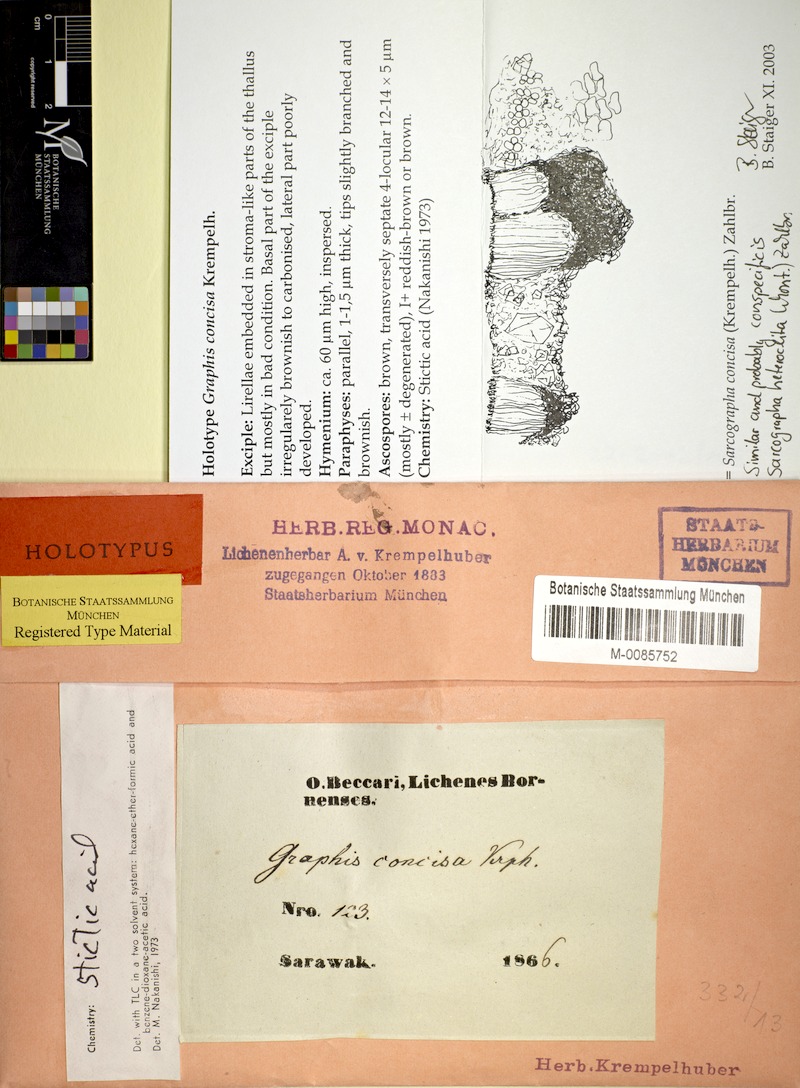 0 1 2
cm
copyright reserved
BOTANISCHE
STAATSSAMMLUNG
MÜNCHEN
Holotype Graphis concisa Krempelh.
Exciple: Lirellae embedded in stroma-like parts of the thallus
but mostly in bad condition. Basal part of the exciple
irregularely brownish to carbonised, lateral part poorly
developed.
Hymenium: ca. 60 µm high, inspersed.
Paraphyses: parallel, 1-1,5 µm thick, tips slightly branched and
brownish.
Ascospores: brown, transversely septate 4-locular 12-14 × 5 µm
(mostly ± degenerated), I+ reddish-brown or brown.
Chemistry: Stictic acid (Nakanishi 1973)
= Sarcographa concisa (Krempelh.) Zahlbr.
Similar and probably conspecific is
Sarcographa heteroclita (Mont.) Zahlbr.
B. Staiger
B. Staiger XI. 2003
HOLOTYPUS
BOTANISCHE STAATSSAMMLUNG
MÜNCHEN
Registered Type Material
HERB.REG.MONAC.
Lichenenherbar A. v. Krempelhuber
zugegangen Oktober 1883
Staatsherbarium München
STAATS-
HERBARIUM
MÜNCHEN
Botanische Staatssammlung München
M-0085752
Chemistry: Stictic acid
Det. with TLC in a two solvent system: hexane-ether-formic acid and
benzene-dioxane-acetic acid.
Det. M. Nakanishi, 1973
O. Beccari, Lichenes Bor-
nenses.
Graphis concisa Krph.
Nro. 123.
Sarawak. 1866.
332/
13
Herb. Krempelhuber